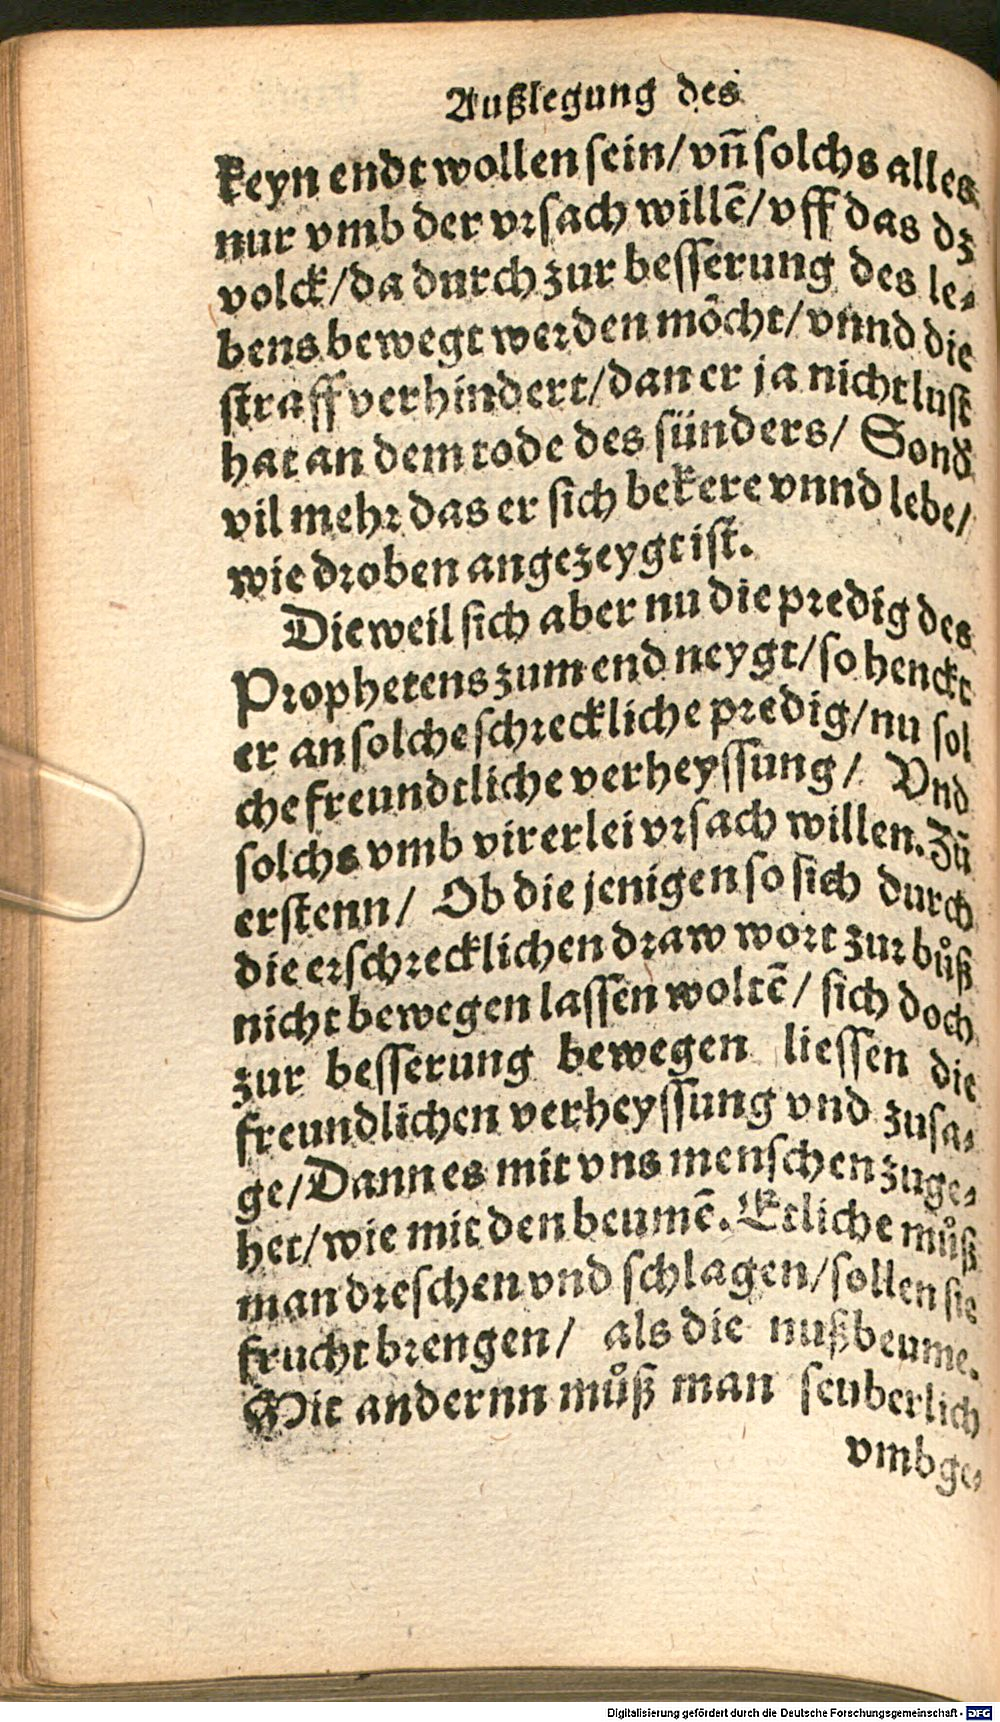 Außlegung des
keyn endt wollen sein/vñ solchs alles
nur vmb der vrsach willē/vff das dz
volck/da durch zur besserung des le-
bens bewegt werden mo̊cht/vnnd die
straff verhindert/dan er ja nicht lust
hat an dem tode des sünders/ Sond
vil mehr das er sich bekere vnnd lebe/
wie droben angezeygt ist.
Dieweil sich aber nu die predig des
Prophetens zum end neygt/so henckt
er an solche schreckliche predig/nu sol
che freundtliche verheyssung/ Vnd
solchs vmb virerlei vrsach willen. Zů
erstenn/ Ob die jenigen so sich durch
die erschrecklichen draw wort zur bůß
nicht bewegen lassen woltē/ sich doch
zur besserung bewegen liessen die
freundlichen verheyssung vnd zusa-
ge/Dann es mit vns menschen zuge-
het/wie mit den beumē. Etliche můß
man dreschen vnd schlagen/sollen sie
frucht brengen/ als die nußbeume.
Mit andernn můß man seuberlich
vmbge-
Digitalisierung gefördert durch die Deutsche Forschungsgemeinschaft - DFG